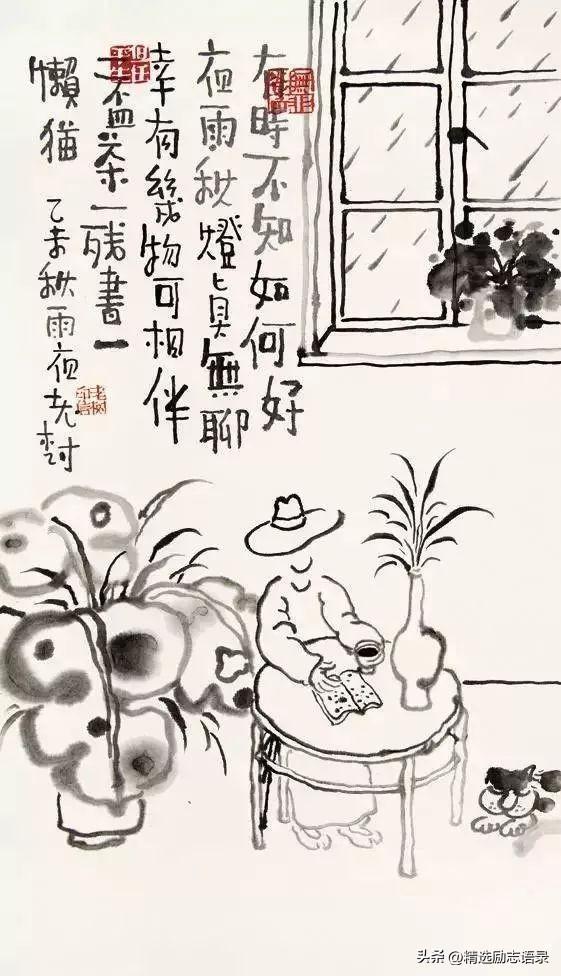 有時不知如何好
夜雨秋燈真無聊
幸有幾物可相伴
一盃茶一残書一
懶猫 乙未秋雨夜老樹
老树印信
头条 @精选励志语录